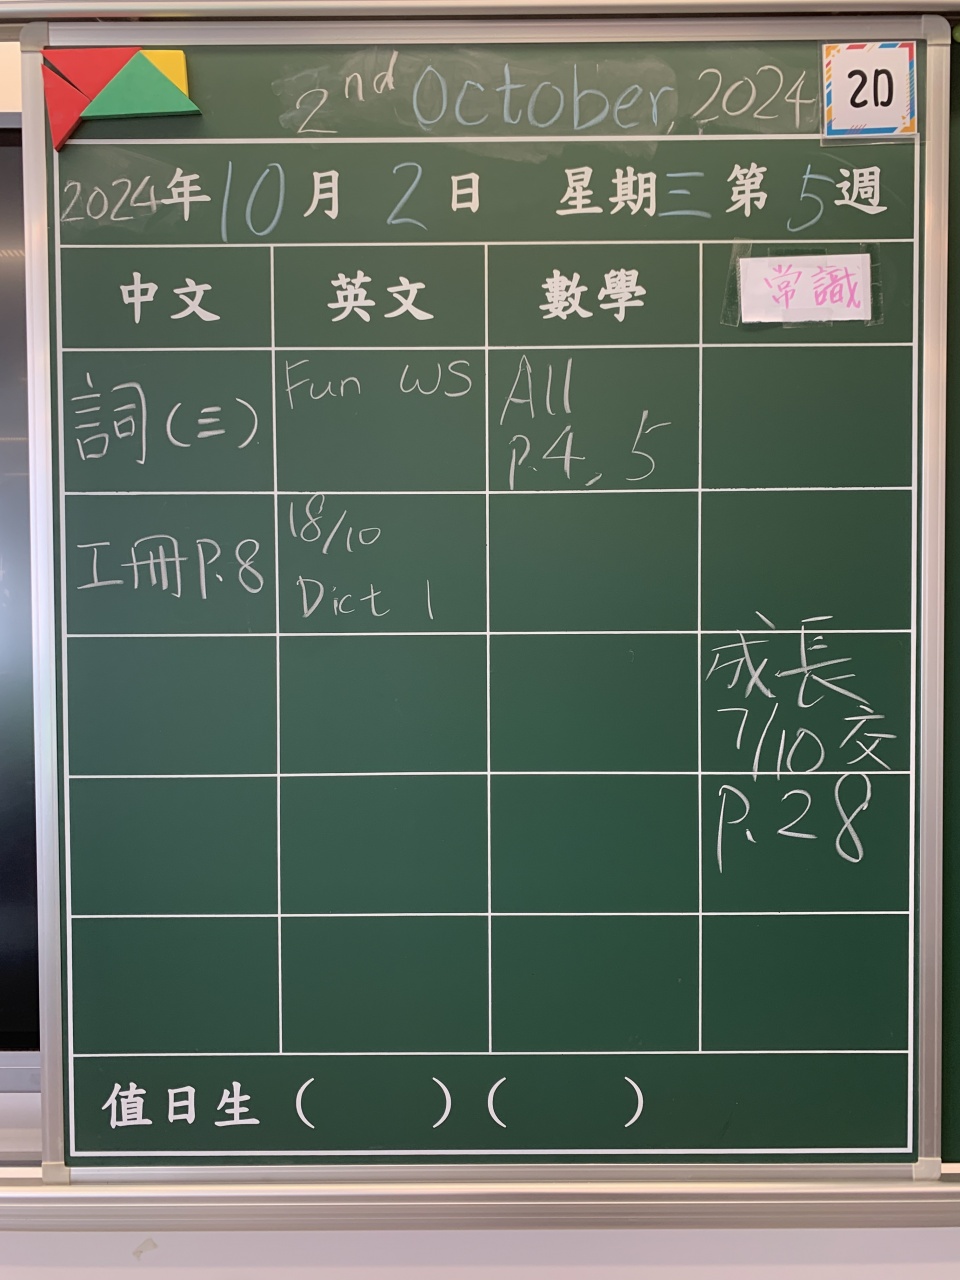 2nd October, 2024
2D
2024年10月2日 星期三第5週
中文 英文 數學 常識
詞(三) Fun WS All
p.4, 5
工冊P.8 18/10
Dict 1
成長
7/10交
P.28
值日生( )( )